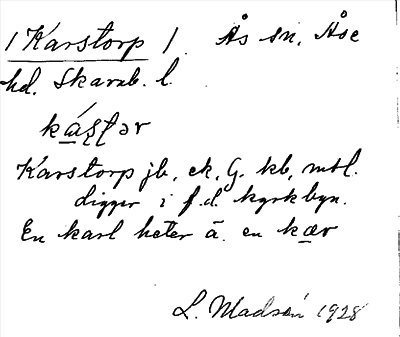 / Karstorp / Ås sn, Åse
hd. Skarab. l.
ká̱ʂʈər
Karstorp jb, ek, G. kb, mtl.
ligger i f.d. kyrkbyn.
En karl heter ä. en kær
L. Madsén 1928